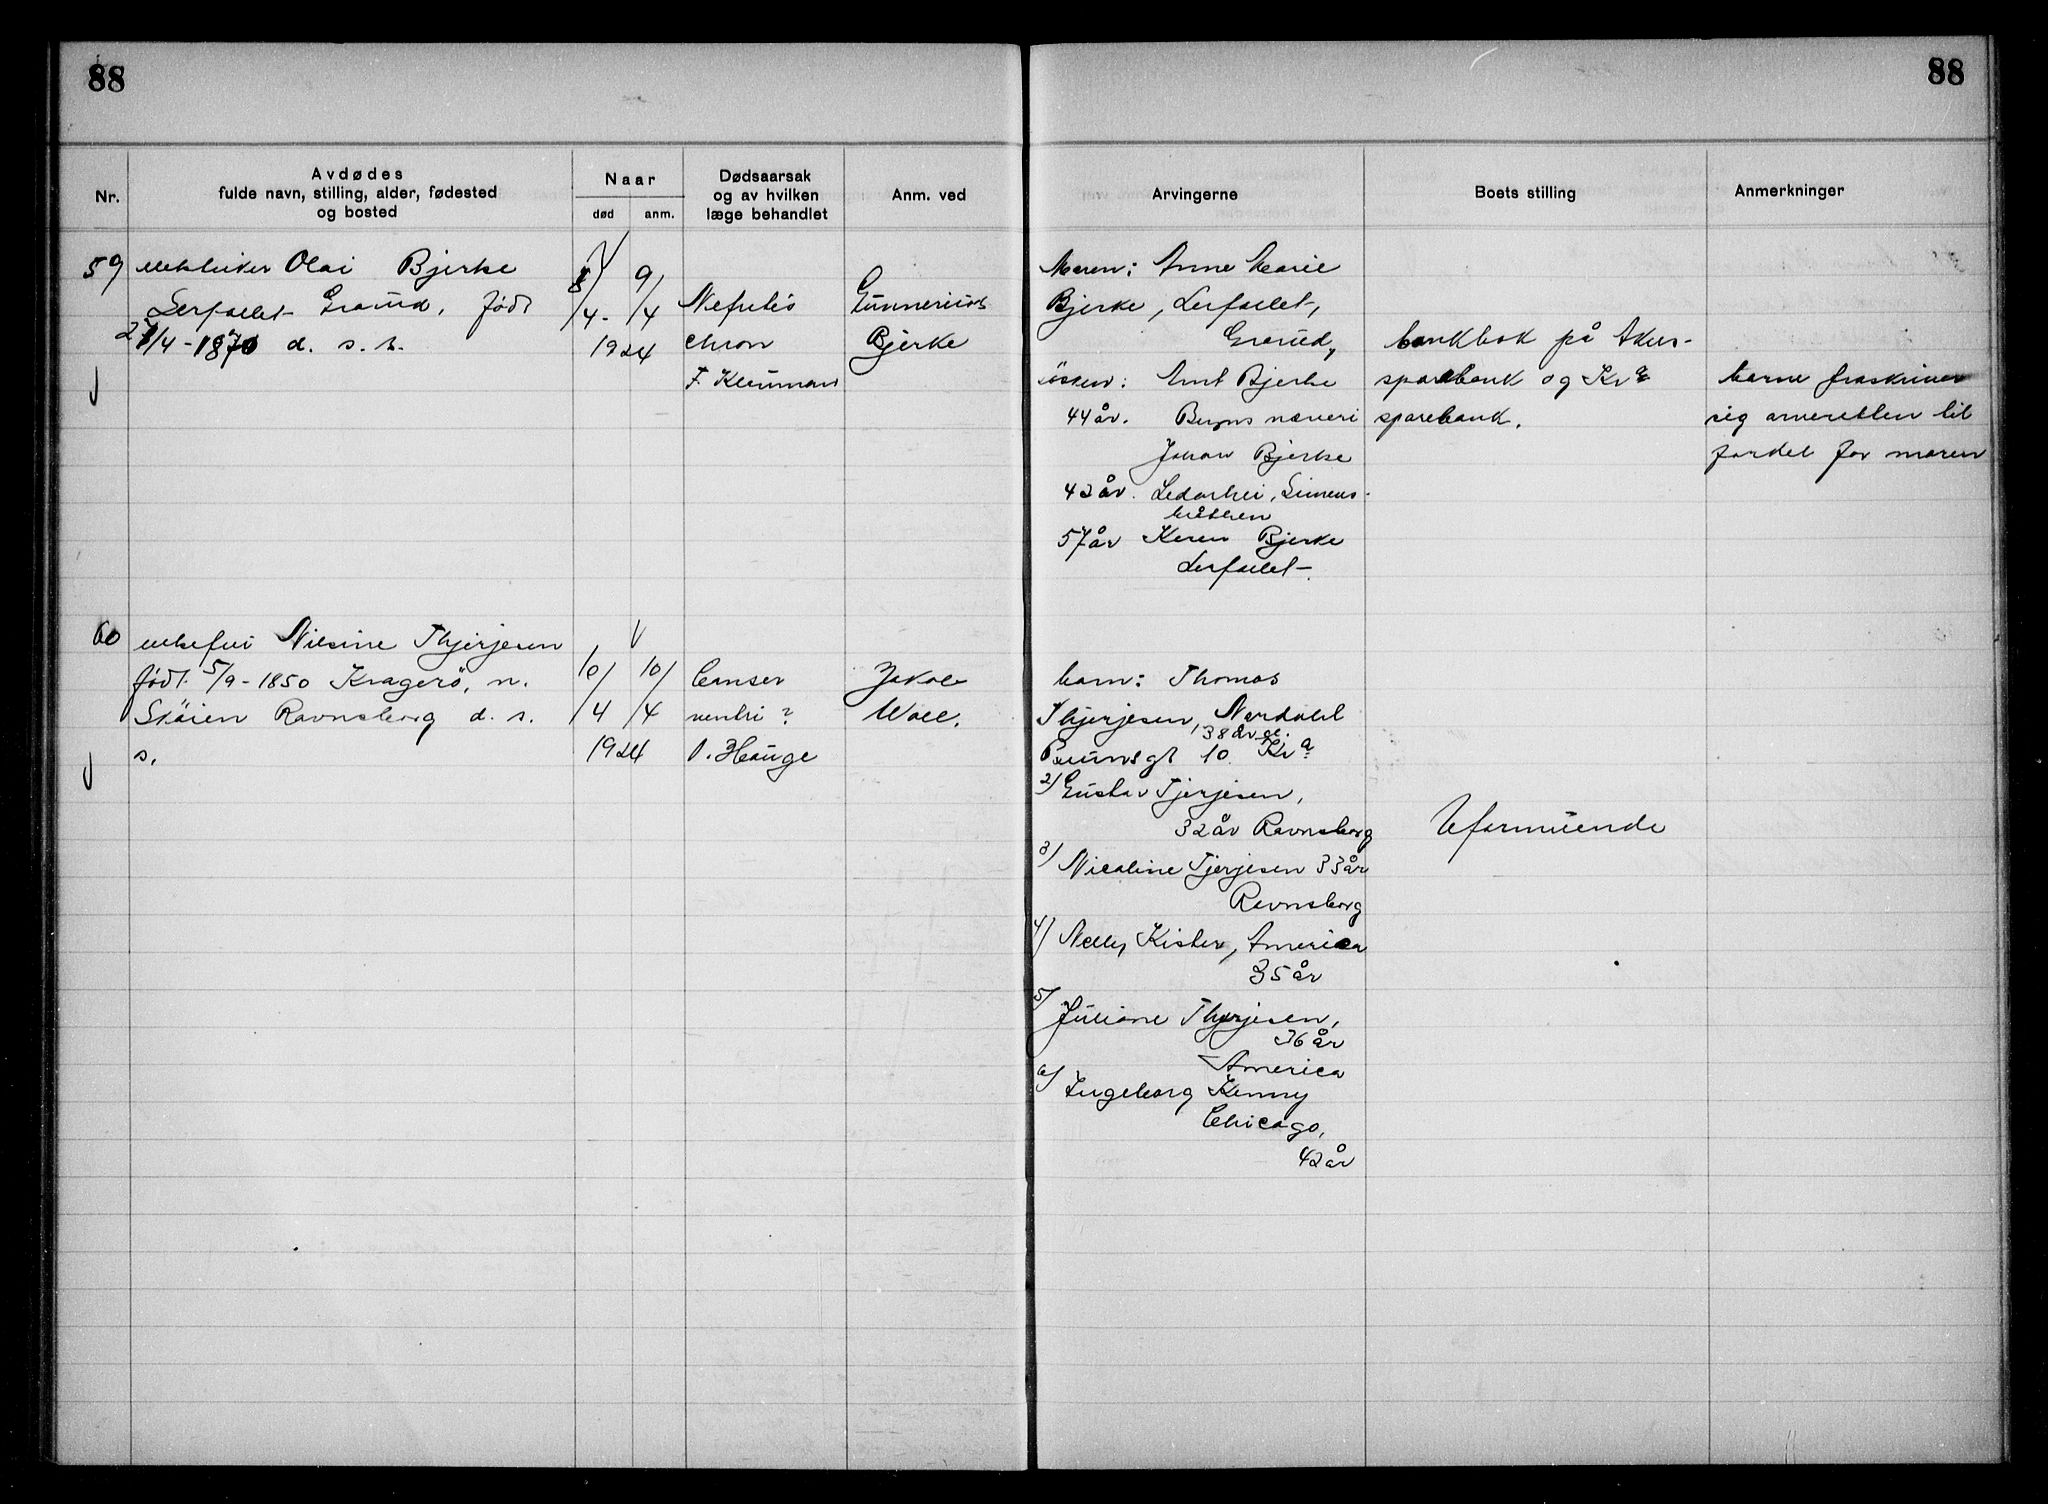 88
88
Nr.
Avdødes
fulde navn, stilling, alder, fødested
og bosted
Naar
død
anm.
Dødsaarsak
og av hvilken
læge behandlet
Anm. ved
Arvingerne
Boets stilling
Anmerkninger
59
Olai Bjerke
Lerfaldet Grorud, født
27/4-1870 d. s. s.
8/4-
9/4
1924
Nefritis
chron
F. Kleuman
Gunnerius
Bjerke
Moren: Anne Marie
Bjerke, Lerfallet,
Grorud,
søsken: Amt Bjerke
44 år.
Johan Bjerke
43 år.
57 år Karen Bjerke
Lerfallet
bankbok på Akers-
sparebank og Kra
sparebank.
barna fraskriver
sig arveretten til
fordel for moren
60
enkefru Nilsine Thjerjesen
født 5/9-1850 Kragerö, n.
Skøien Ravnsborg d. s.
s.
10/4
10/4
1924
Canser
ventri?
O. Hauge
Jakob
Woll.
barn: Thomas
Thjerjesen, Nordahl
38 år gl.
Brunsgt 10 Kra
2/ Gustav Tjerjesen,
32 år Ravnsborg
3/ Nicoline Tjerjesen 33 år
Ravnsborg
4/ Nelly Kister, America
35 år
5/ Juliane Thjerjesen,
36 år
America
6/ Ingeborg Kenny
Chicago,
42 år
Uformuende